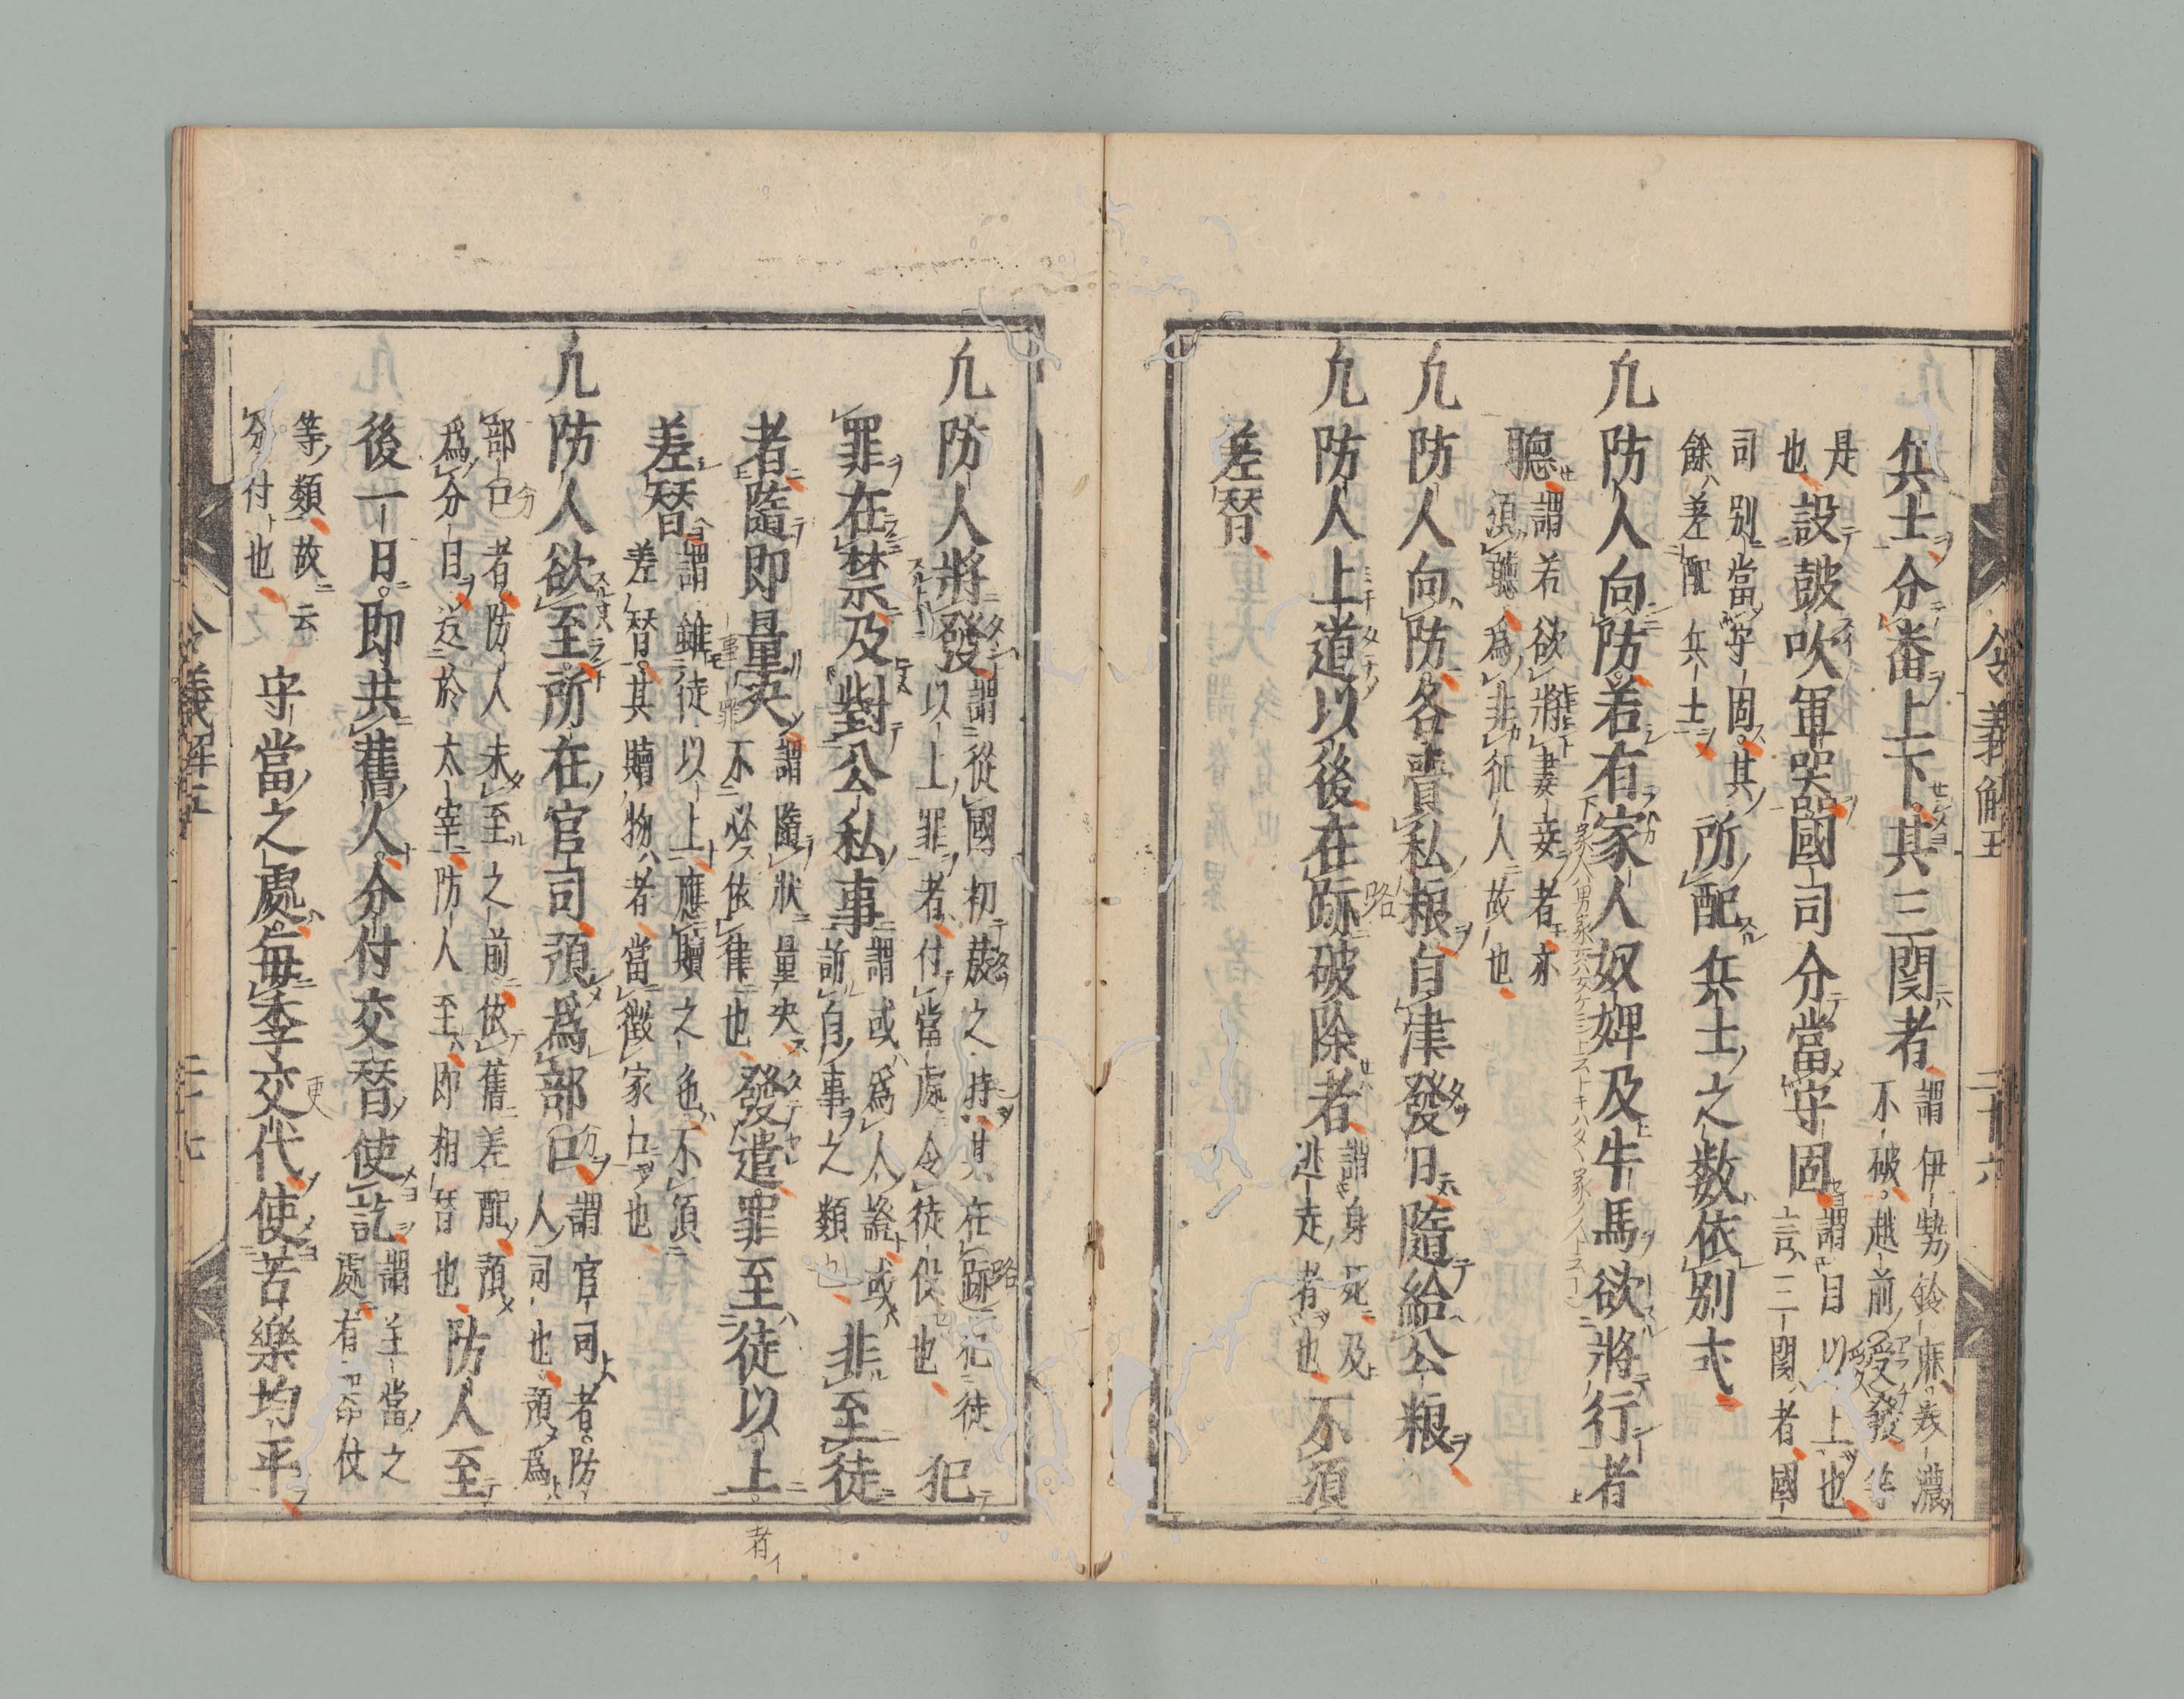 兵士分畨上下其三関者
謂伊勢鈴麻美濃
不破越前愛發等
是
也
設鼓吹軍器國司分當守固
謂目以上也
言三関者國
司別當守固其
餘差配兵士
所配兵士之数依別式
凢防人向防若有家人奴婢及牛馬欲將行者
聴
謂若欲將妻妾者亦
須聴為非征人故也
凢防人向防各賷私粮自津發日隨給公粮
凢防人上道以後在跡破除者
謂身死及
逃走者也
不須
差替
令義解五
二十六
凢防人將發
謂從國初發之時其在跡犯徒
以上罪者付當處令徒役也
犯
罪在禁及對公私事
謂或為人證或
訴自事之類也
非至徒
者隨即量决
謂隨狀量决
不必依律也
發遣罪至徒以上
差替
謂雖徒以上應贖之色不須
差替其贖物者當徴家口也
凢防人欲至所在官司預為部口
謂官司者防
人司也預為
部口者防人未至之前依舊差配預
為分日近於太宰防人至即相替也
防人至
後一日即共舊人分付交替使訖
謂主當之
處有器仗
等類故云
分付也
守當之處毎季交代使苦樂均平
令義解五
二十七